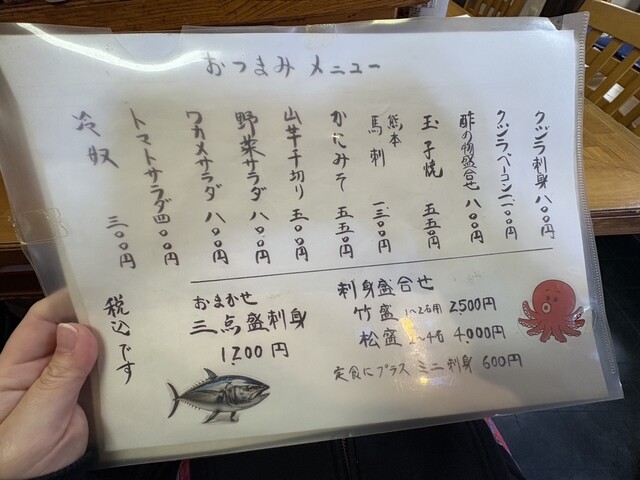 おつまみメニュー
クヅラ刺身 八〇〇円
クヅラベーコン 一二〇〇円
酢の物盛合せ 八〇〇円
玉子焼 五五〇円
熊本
馬刺 一三〇〇円
かにみそ 五五〇円
山芋千切り 五〇〇円
野菜サラダ 八〇〇円
ワカメサラダ 八〇〇円
トマトサラダ 四〇〇円
冷奴 三〇〇円
刺身盛合せ
竹盛 1〜2名用 2,500円
松盛 2〜4名 4,000円
定食にプラス ミニ刺身 600円
おまかせ
三点盛刺身
1,200円
税込です